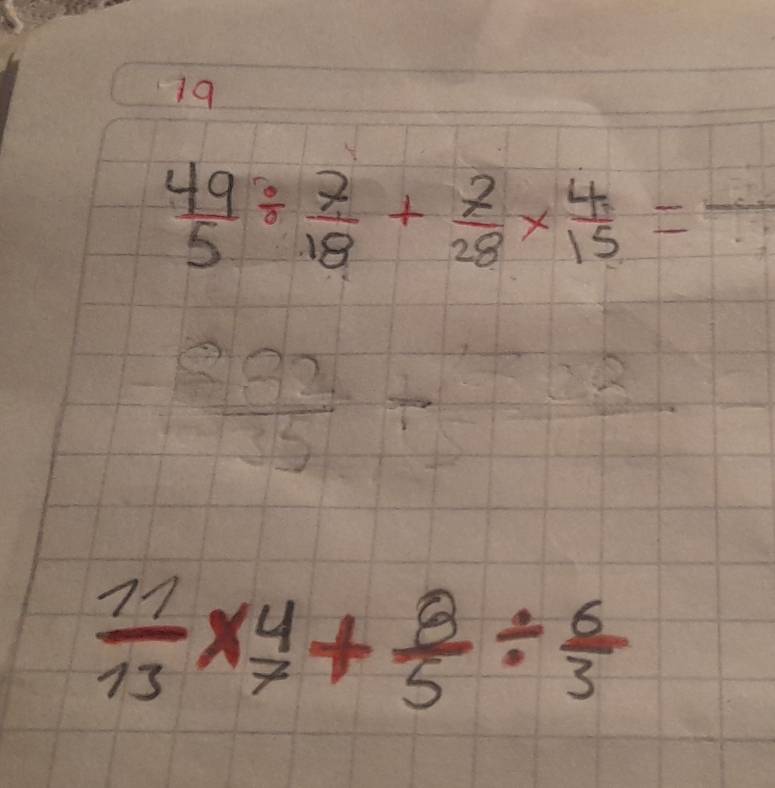 19
49/5 ÷ 7/18 + 7/28 × 4/15 =
882/35 +
11/13 × 4/7 + 8/5 ÷ 6/3